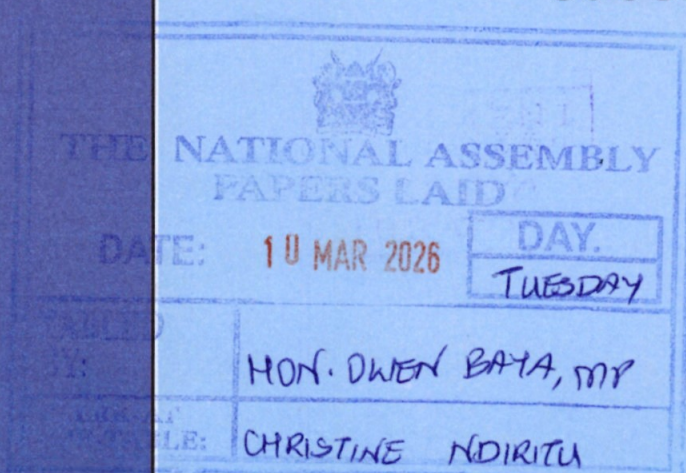 THE NATIONAL ASSEMBLY
PAPERS LAID
DATE: 10 MAR 2026
DAY.
TUESDAY
TABLED
BY: HON. OWEN BAYA, MP
CLERK-AT
THE-TABLE: CHRISTINE NDIRITU